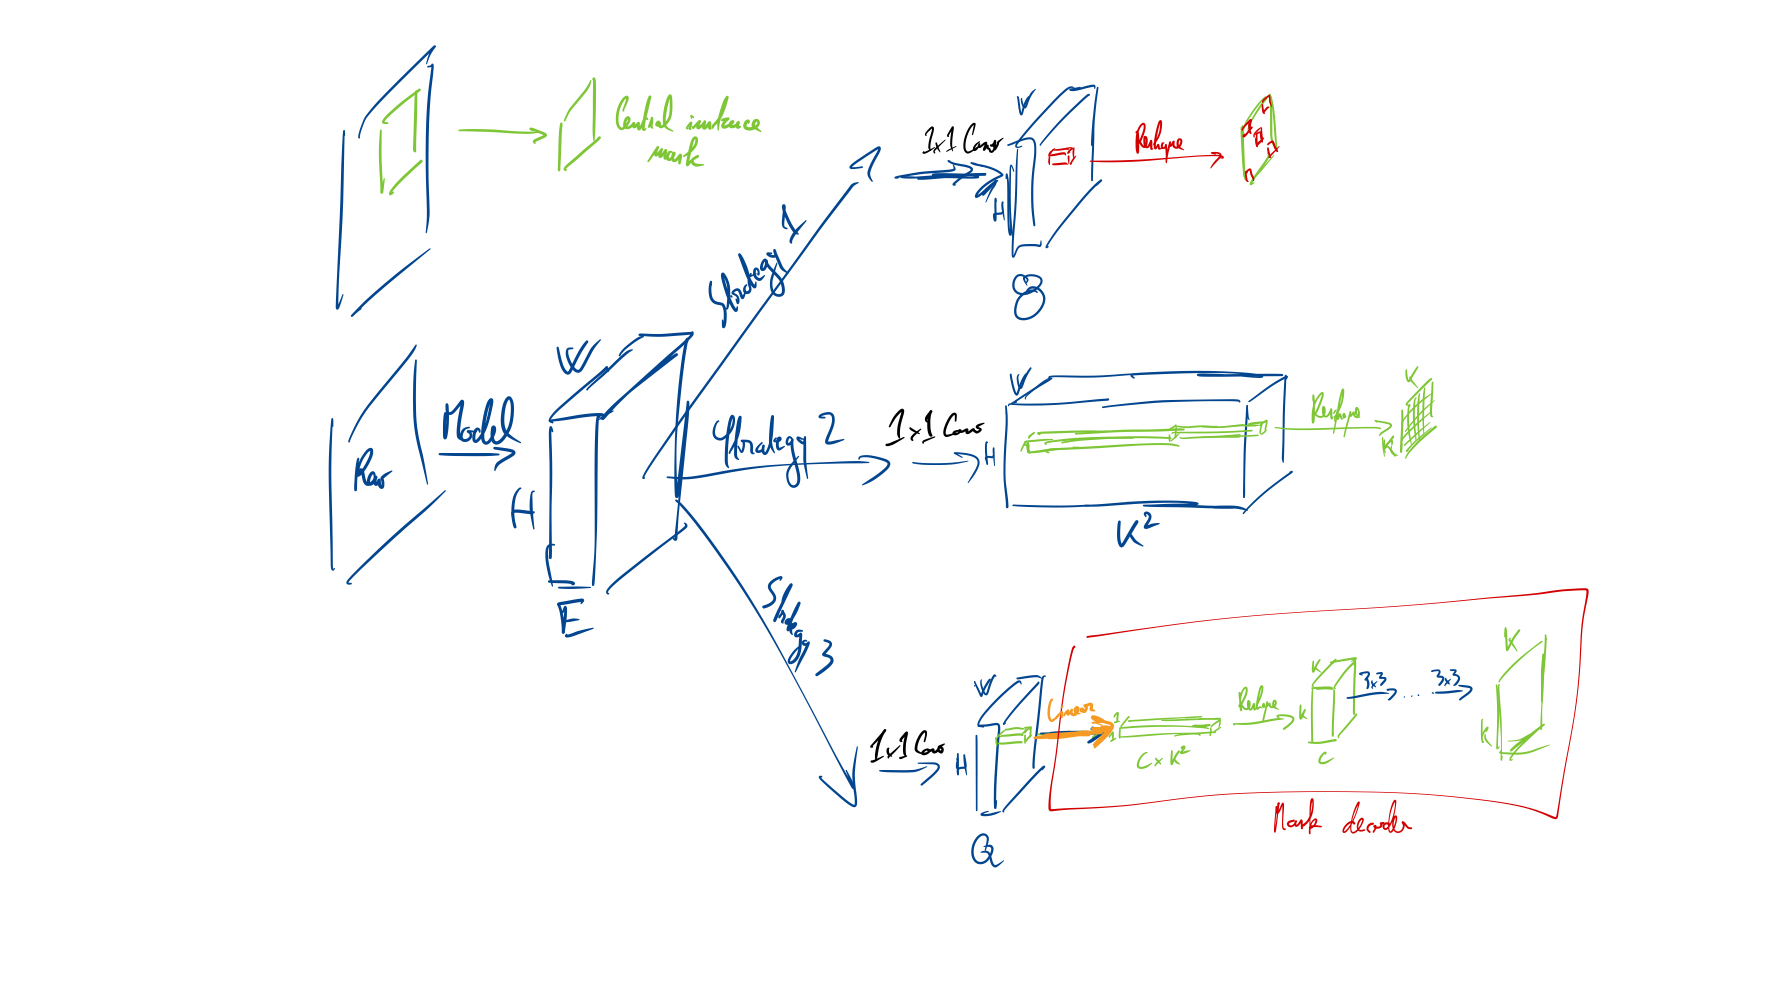 Central instance
mask
1x1 Conv
W
H
8
Reshape
Strategy 1
Raw
Model
W
H
E
Strategy 2
1x1 Conv
W
H
K²
Reshape
K
K
Strategy 3
1x1 Conv
W
H
Q
Linear
1
1
C x K²
Reshape
K
K
C
3x3
...
3x3
K
K
Mask decoder